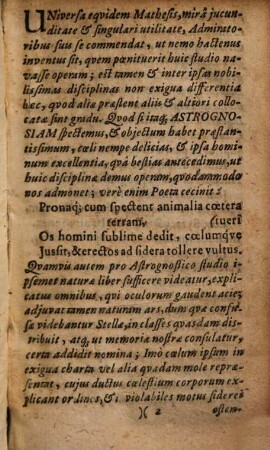 UNiversa eqvidem Mathesis, mirâ jucun-
ditate & singulari utilitate, Admirato-
ribus suis se commendat, ut nemo hactenus
inventus sit, qvem pœnituerit huic studio na-
vasse operam; est tamen & inter ipsas nobi-
lissimas disciplinas non exigua differentia
hæc, quod aliæ præstent aliis & altiori collo-
catæ sint gradu. Quod si itaq; ASTROGNO-
SIAM spectemus, & objectum habet præstan-
tissimum, cœli nempe delicias, & ipsa homi-
num excellentia, quâ bestias antecedimus, ut
huic disciplinæ demus operam, quodammodo
nos admonet; verè enim Poëta cecinit:
Pronaq; cum spectent animalia cœtera
terram, (tueri
Os homini sublime dedit, cœlumqve
Jussit, & erectos ad sidera tollere vultus.
Quamvis autem pro Astrognostico studio i-
psemet naturæ liber sufficere videatur, expli-
catus omnibus, qvi oculorum gaudent acie;
adjuvat tamen naturam ars, dum quæ confu-
sæ videbantur Stellæ, in classes quasdam dis-
tribuit, atq; ut memoriæ nostræ consulatur,
certa addidit nomina; Imò cœlum ipsum in
exigua charta vel alia quadam mole repræ-
sentat, cujus ductus cœlestium corporum ex-
plicant ordines, & inviolabiles motus siderei
)( 2 osten-